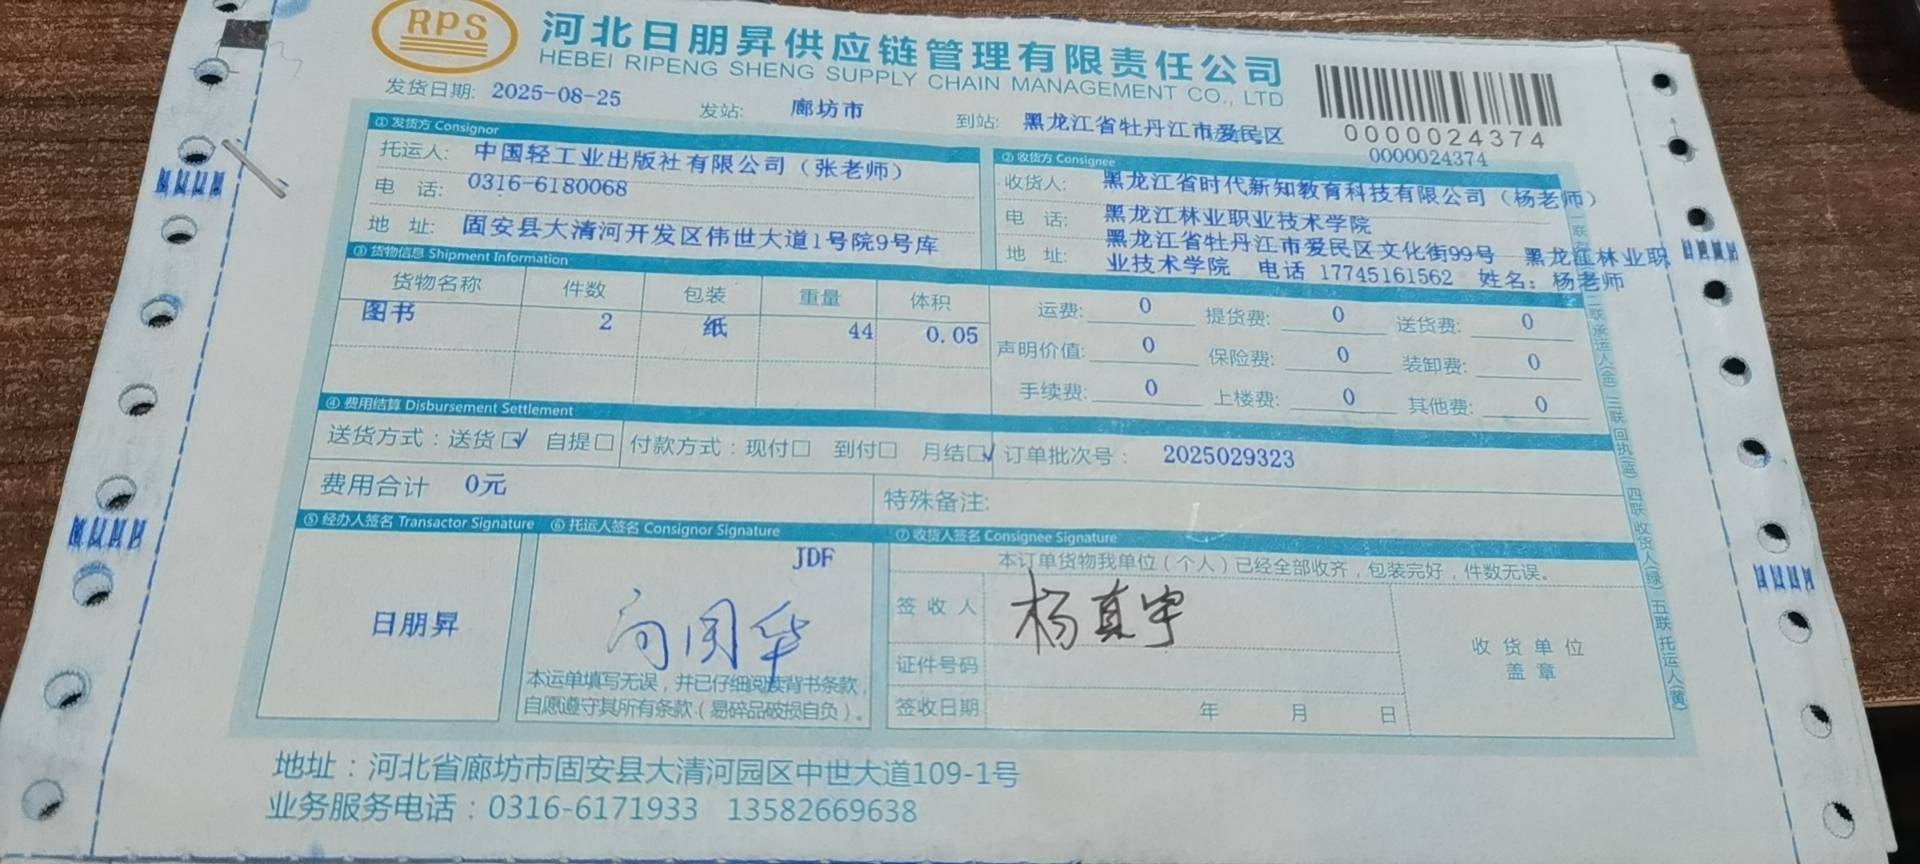 RPS
河北日朋昇供应链管理有限责任公司
HEBEI RIPENG SHENG SUPPLY CHAIN MANAGEMENT CO., LTD
发货日期: 2025-08-25 发站: 廊坊市 到站: 黑龙江省牡丹江市爱民区
0000024374
0000024374
① 发货方 Consignor
托运人: 中国轻工业出版社有限公司（张老师）
电 话: 0316-6180068
地 址: 固安县大清河开发区伟世大道1号院9号库
② 收货方 Consignee
收货人: 黑龙江省时代新知教育科技有限公司（杨老师）
电 话: 黑龙江林业职业技术学院
地 址: 黑龙江省牡丹江市爱民区文化街99号 黑龙江林业职
业技术学院 电话 17745161562 姓名: 杨老师
③ 货物信息 Shipment Information
货物名称 件数 包装 重量 体积
图书 2 纸 44 0.05
运费: 0 提货费: 0 送货费: 0
声明价值: 0 保险费: 0 装卸费: 0
手续费: 0 上楼费: 0 其他费: 0
④ 费用结算 Disbursement Settlement
送货方式：送货☑ 自提☐ 付款方式：现付☐ 到付☐ 月结☑ 订单批次号： 2025029323
费用合计 0元 特殊备注:
⑤ 经办人签名 Transactor Signature ⑥ 托运人签名 Consignor Signature ⑦ 收货人签名 Consignee Signature
日朋昇
JDF
本运单填写无误，并已仔细阅读背书条款，
自愿遵守其所有条款（易碎品破损自负）。
本订单货物我单位（个人）已经全部收齐，包装完好，件数无误。
签收人 杨真宇
证件号码
签收日期 年 月 日
收货单位
盖章
二联 承运人(金) 三联 回执(蓝) 四联 收货人(绿) 五联 托运人(黄)
地址：河北省廊坊市固安县大清河园区中世大道109-1号
业务服务电话：0316-6171933 13582669638